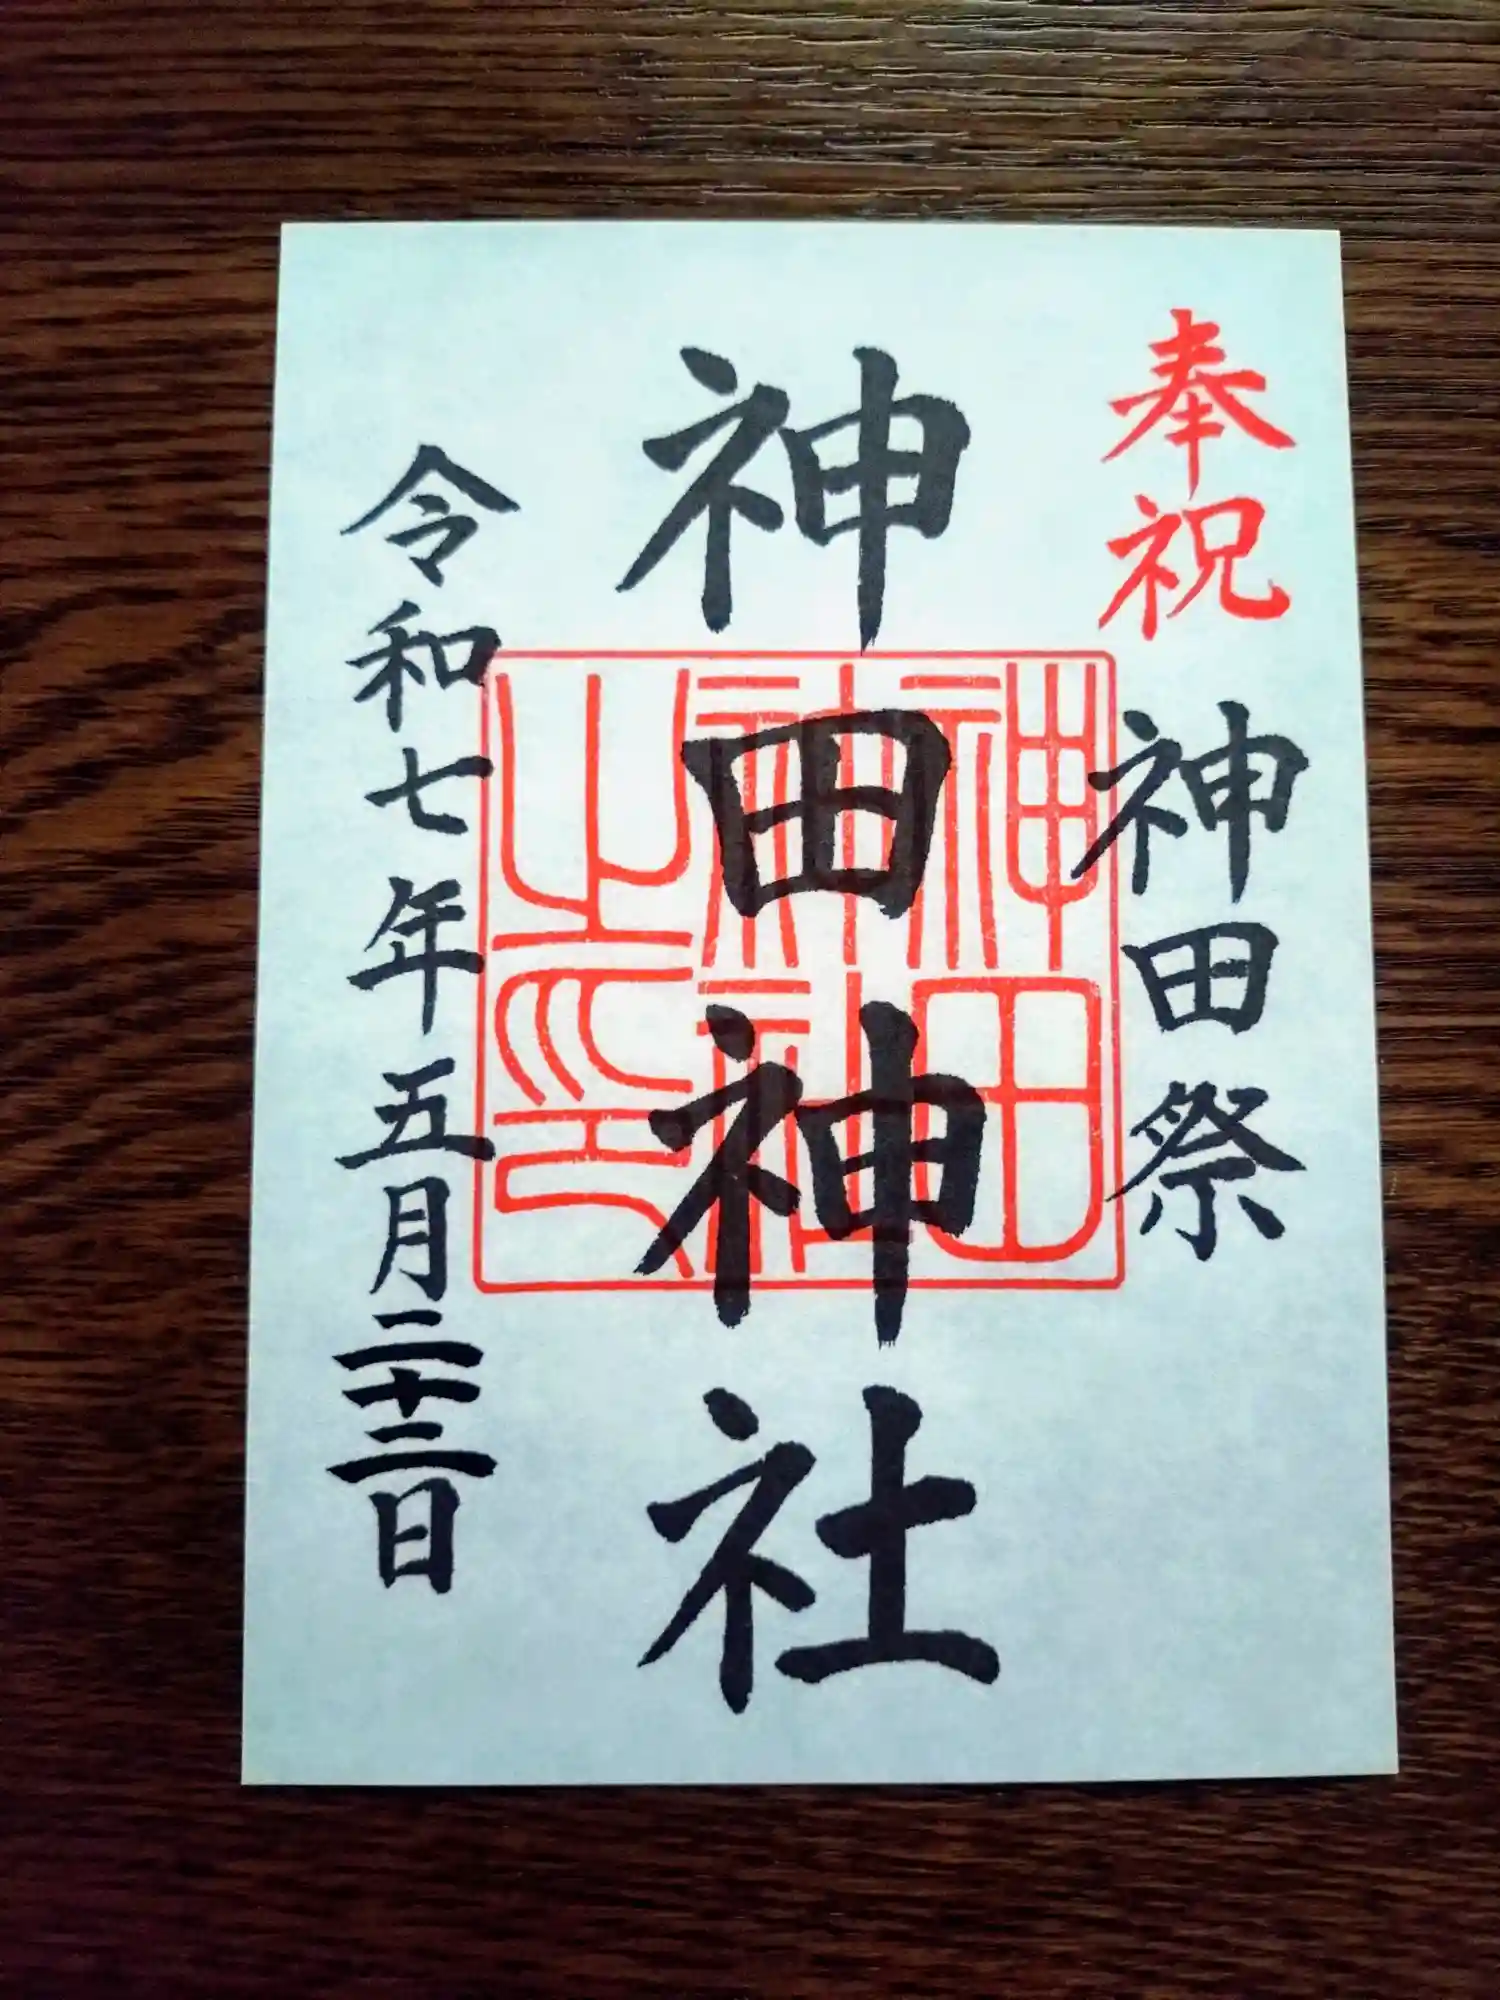 奉祝 神田祭
神田神社
神田神社之印
令和七年五月二十二日